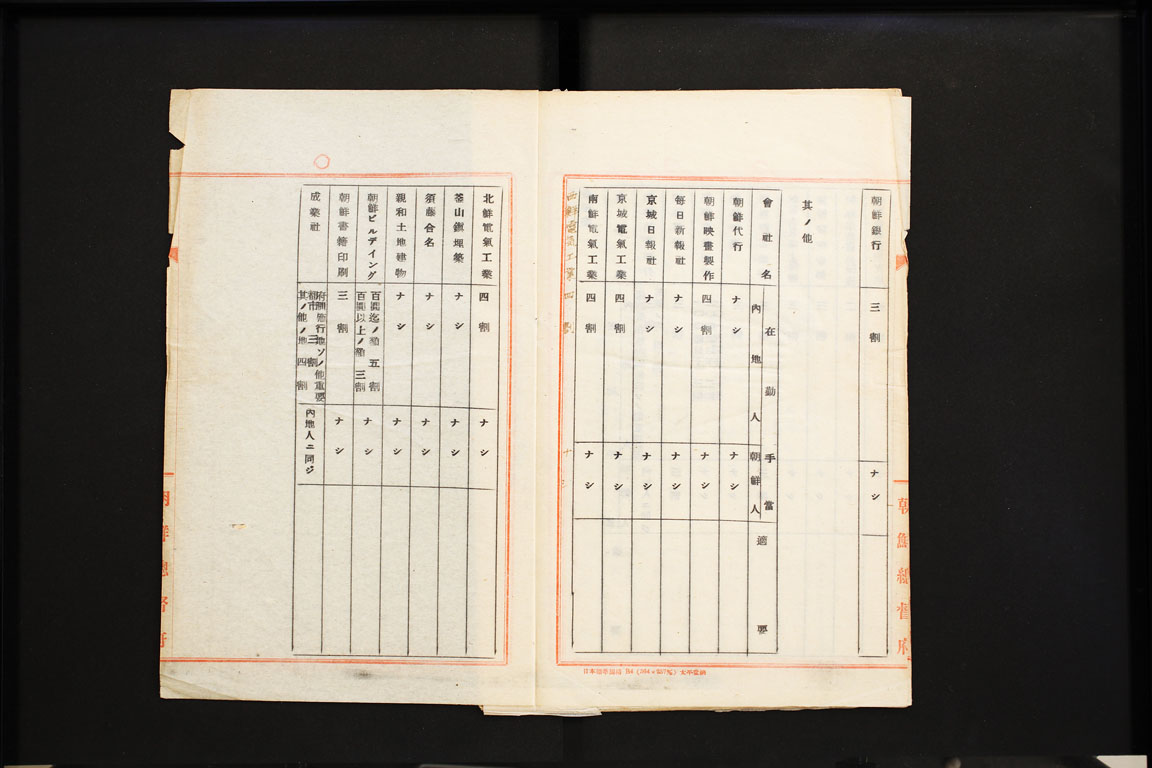 朝鮮銀行 三割 ナシ
其ノ他
會社名 在勤手當 適要
內地人 朝鮮人
朝鮮代行 ナシ ナシ
朝鮮映畫製作 四割 ナシ
每日新報社 ナシ ナシ
京城日報社 ナシ ナシ
京城電氣工業 四割 ナシ
南鮮電氣工業 四割 ナシ
西鮮電氣工業 四割 ナシ
朝鮮總督府
北鮮電氣工業 四割 ナシ
釜山鎭埋築 ナシ ナシ
須藤合名 ナシ ナシ
親和土地建物 ナシ ナシ
朝鮮ビルデイング 百圓迄ノ者 五割 ナシ
百圓以上ノ者 三割
朝鮮書籍印刷 三割 ナシ
成業社 府制施行地ソノ他重要 內地人ニ同ジ
都市 三割
其ノ他ノ地 四割
朝鮮總督府